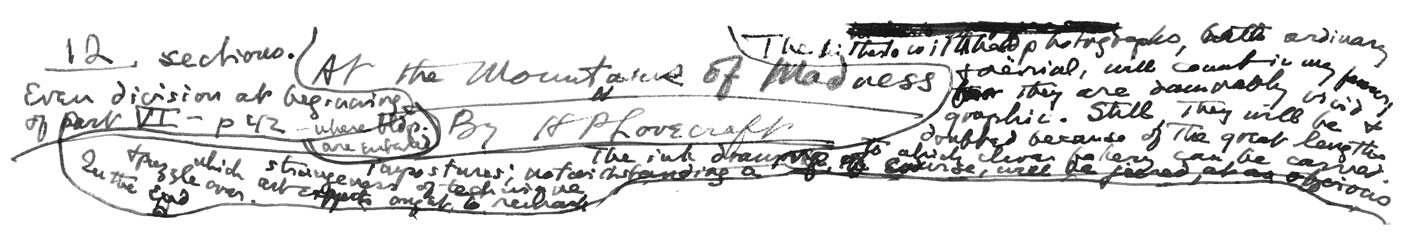 12 sections.
Even division at beginning
of part VI — p 42 — where bldgs.
are entered
At the Mountains of Madness
By H P Lovecraft
The hitherto withheld photographs, both ordinary
& aërial, will count in my favour,
for they are damnably vivid &
graphic. Still, they will be
doubted because of the great lengths
to which clever fakery can be carried.
The ink drawings, of course, will be jeered at as obvious
impostures, notwithstanding a
strangeness of technique
which art experts ought to remark
& puzzle over.
In the end